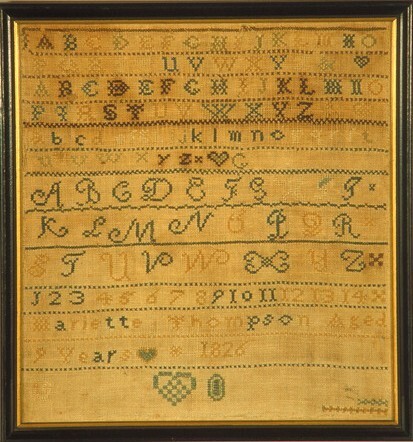 A B C D E F G H I J K L M N O
U V W X Y Z
A B C D E F G H I J K L M N O
P Q R S T U V W X Y Z
a b c d j k l m n o t
u v w x y z G
A B C D E F G J
K L M N O P Q R
S T U V W X Y Z
1 2 3 4 5 6 7 8 9 10 11 12 13 14
Harlette Thompson Aged
9 Years 1826